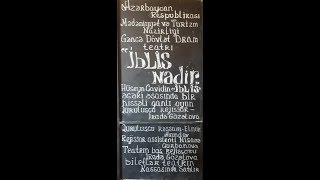 Azərbaycan
Respublikası
Mədəniyyət və Turizm
Nazirliyi
Gəncə Dövlət Dram
teatrı
"İBLİS
NADİR"
Hüseyn Cavidin "İBLİS"
əsəri əsasında bir
hissəli qanlı oyun
Quruluşçu rejissor-
İradə Gözəlova
Quruluşçu rəssam-Elnur
Rejissor assistenti Nisəxanım
Qurbanova
Teatrın baş rejissoru
İradə Gözəlova
biletlər teatrın
kassasında satılır